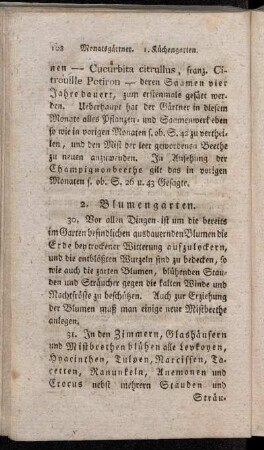 168 Monatsgärtner. 1. Küchengarten.
nen — Cucurbita citrullus, franz. Ci-
trouille Potiron — deren Saamen vier
Jahre dauert, zum erstenmale gesäet wer-
den. Ueberhaupt hat der Gärtner in diesem
Monate alles Pflanzen- und Saamenwerk eben
so wie in vorigen Monaten s. ob. S. 40 zu verthei-
len, und den Mist der leer gewordenen Beethe
zu neuen anzuwenden. In Ansehung der
Champignonbeethe gilt das in vorigen
Monaten s. ob. S. 26 u. 43 Gesagte.
2. Blumengarten.
30. Vor allen Dingen ist um die bereits
im Garten befindlichen ausdauernden Blumen die
Erde bey trockener Witterung aufzulockern,
und die entblößten Wurzeln sind zu bedecken, so
wie auch die zarten Blumen, blühenden Stau-
den und Sträucher gegen die kalten Winde und
Nachtfröste zu beschützen. Auch zur Erziehung
der Blumen muß man einige neue Mistbeethe
anlegen.
31. In den Zimmern, Glashäusern
und Mistbeethen blühen alle Levkoyen,
Hyacinthen, Tulpen, Narcissen, Ta-
cetten, Ranunkeln, Anemonen und
Crocus nebst mehrern Stauden und
Sträu-